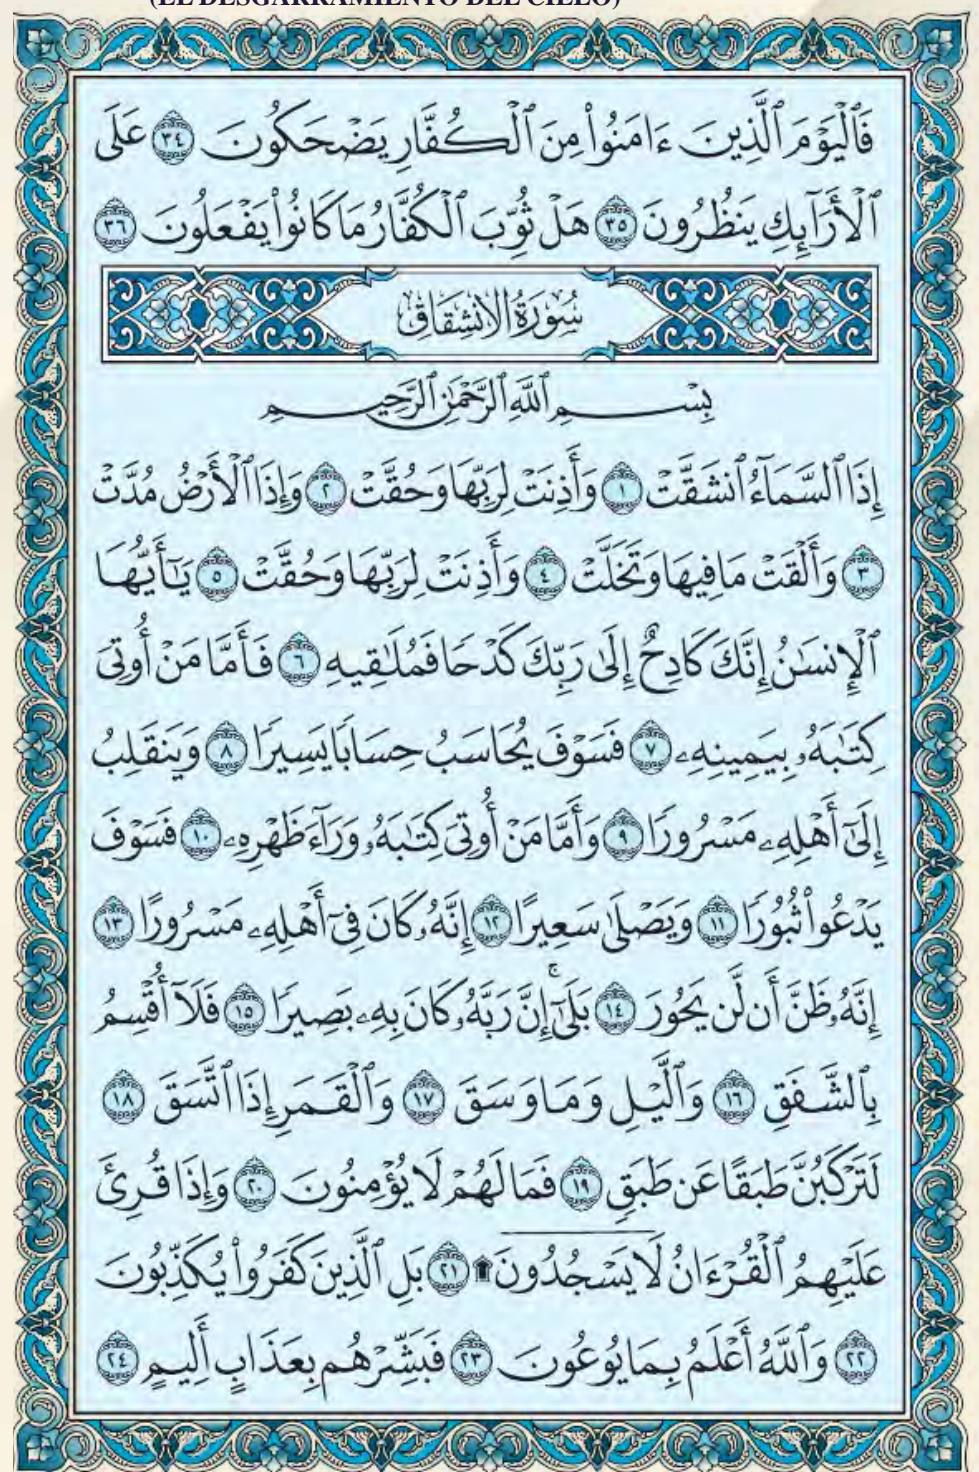 (EL DESGARRAMIENTO DEL CIELO)
فَٱلْيَوْمَ ٱلَّذِينَ ءَامَنُوا۟ مِنَ ٱلْكُفَّارِ يَضْحَكُونَ ٣٤ عَلَى
ٱلْأَرَآئِكِ يَنظُرُونَ ٣٥ هَلْ ثُوِّبَ ٱلْكُفَّارُ مَا كَانُوا۟ يَفْعَلُونَ ٣٦
سُورَةُ الانشِقَاقِ
بِسْمِ ٱللَّهِ ٱلرَّحْمَٰنِ ٱلرَّحِيمِ
إِذَا ٱلسَّمَآءُ ٱنشَقَّتْ ١ وَأَذِنَتْ لِرَبِّهَا وَحُقَّتْ ٢ وَإِذَا ٱلْأَرْضُ مُدَّتْ
٣ وَأَلْقَتْ مَا فِيهَا وَتَخَلَّتْ ٤ وَأَذِنَتْ لِرَبِّهَا وَحُقَّتْ ٥ يَٰٓأَيُّهَا
ٱلْإِنسَٰنُ إِنَّكَ كَادِحٌ إِلَىٰ رَبِّكَ كَدْحًا فَمُلَٰقِيهِ ٦ فَأَمَّا مَنْ أُوتِىَ
كِتَٰبَهُۥ بِيَمِينِهِۦ ٧ فَسَوْفَ يُحَاسَبُ حِسَابًا يَسِيرًا ٨ وَيَنقَلِبُ
إِلَىٰٓ أَهْلِهِۦ مَسْرُورًا ٩ وَأَمَّا مَنْ أُوتِىَ كِتَٰبَهُۥ وَرَآءَ ظَهْرِهِۦ ١٠ فَسَوْفَ
يَدْعُوا۟ ثُبُورًا ١١ وَيَصْلَىٰ سَعِيرًا ١٢ إِنَّهُۥ كَانَ فِىٓ أَهْلِهِۦ مَسْرُورًا ١٣
إِنَّهُۥ ظَنَّ أَن لَّن يَحُورَ ١٤ بَلَىٰٓۚ إِنَّ رَبَّهُۥ كَانَ بِهِۦ بَصِيرًا ١٥ فَلَآ أُقْسِمُ
بِٱلشَّفَقِ ١٦ وَٱلَّيْلِ وَمَا وَسَقَ ١٧ وَٱلْقَمَرِ إِذَا ٱتَّسَقَ ١٨
لَتَرْكَبُنَّ طَبَقًا عَن طَبَقٍ ١٩ فَمَا لَهُمْ لَا يُؤْمِنُونَ ٢٠ وَإِذَا قُرِئَ
عَلَيْهِمُ ٱلْقُرْءَانُ لَا يَسْجُدُونَ ۩ ٢١ بَلِ ٱلَّذِينَ كَفَرُوا۟ يُكَذِّبُونَ
٢٢ وَٱللَّهُ أَعْلَمُ بِمَا يُوعُونَ ٢٣ فَبَشِّرْهُم بِعَذَابٍ أَلِيمٍ ٢٤